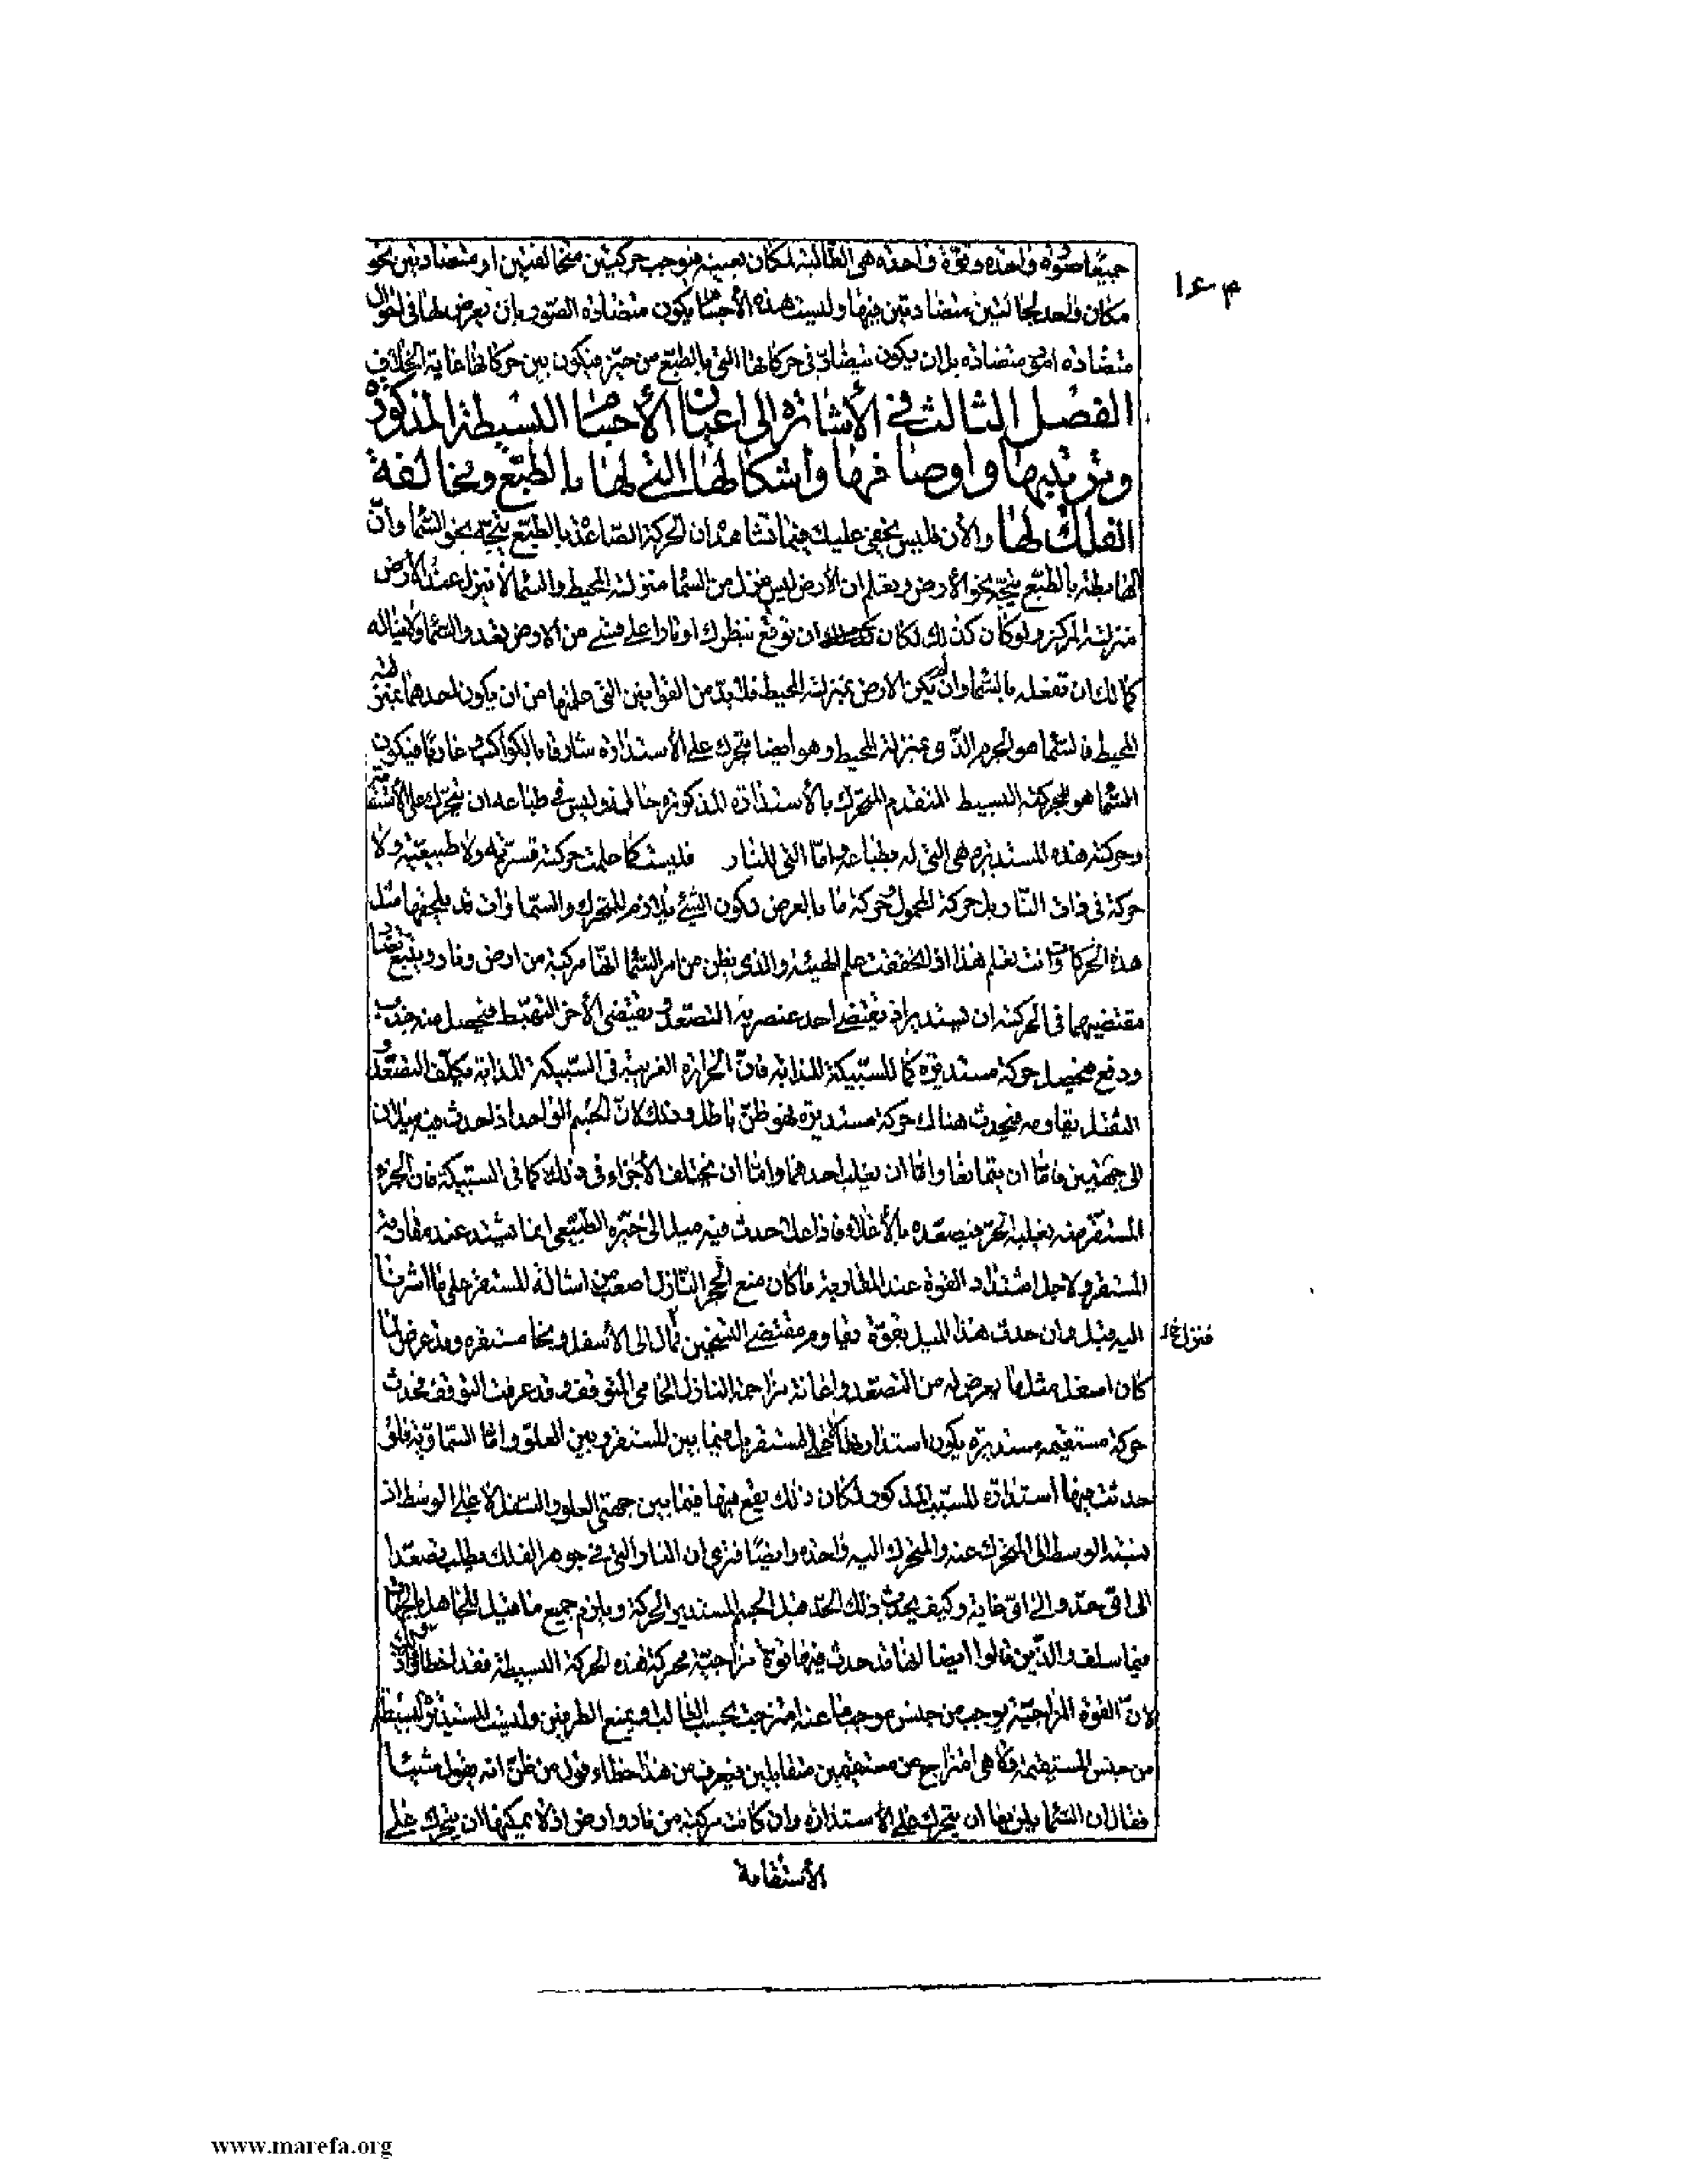 جميعا صورة واحدة وقوة واحدة هي الطالبة لمكان بعينه فتوجب حركتين متخالفتين او متضادتين نحو
مكان واحد لحالتين متضادتين فيها وليست هذه الأجسام يكون متضادة الصور بان يعرض لها في احوال
متضادة امور متضادة بل ان يكون يتضاد في حركاتها التي بالطبع من حيز فيكون بين حركاتها غاية الخلاف
الفصل الثالث في الأشارة الى اعيان الأجسام البسيطة المذكورة
وترتيبها واوصافها وأشكالها التي لها بالطبع ومخالفة
الفلك لها والأن فليس يخفى عليك فيما تشاهد ان الحركة الصاعدة بالطبع يتجه نحو السماء وان
الهابطة بالطبع يتجه نحو الأرض وتعلم ان الأرض ليس تنزل من السماء منزلة المحيط والسماء لا تنزل عند الأرض
منزلة المركز ولو كان كذلك لكان ان توقع بنظرك او نارا على شيء من الارض بعد والسماء ولا يناله
كما لك ان تفعله بالسماء وان لم يكن الارض بمنزلة المحيط فلا بد من القوانين التي علمتها من ان يكون احدهما بمنزلة
المحيط فالسماء هو الجرم الذي بمنزلة المحيط وهو ايضا متحرك على الأستدارة شارقا بالكواكب غاربا فيكون
السماء هو الجرم البسيط المتقدم المتحرك بالأستدارة المذكورة حاله وليس في طباعه ان يتحرك على الأستقامة
وحركته هذه المستديرة هي التي له بطباعه واما التي للنار فليست كما علمت حركة قسرية ولا طبيعية ولا
حركة في ذات النار بل حركة المحمول حركة ما بالعرض فكون الشيء ملازم للمتحرك والسماوات قد يلحقها مثل
هذه الحركات وانت تعلم هذا اذا تحققت علم الهيئة والذي يظن من امر السماء انها مركبة من ارض ونار ويتبع تضاد
مقتضيهما في الحركة ان تستدير اذ يقتضي احد عنصريه التصعد ويقتضي الأخر التهبط فيحصل منه جذب
ودفع فيحصل حركة مستديرة كما للسبيكة المذابة فان الحرارة الغريبة في السبيكة المذابة يكلف التصعد و
الثقل يقاومه فيحدث هناك حركة مستديرة فهو ظن باطل وذلك لان الجسم الواحد اذا حدث فيه ميلان
الى جهتين فاما ان يتمانعا واما ان يغلب احدهما واما ان يختلف الأجزاء في ذلك كما في السبيكة فان الجزء
المستقر منه يغلبه الحر فيصعده بالأغلاء فاذا علا حدث فيه ميل الى حيزه الطبيعي انما تشتد عند مقاومة
المستقر ولاجل اشتداد القوة عند المقاربة ما كان منع الحجر النازل اصعب من اشالة المستقر على ما اشرنا
اليه قبل وان حدث هذا الميل بقوة يقاوم مقتضى التسخين مال الى الأسفل ونحا مستقره وقد عرض لما
كان اسفل مثل ما يعرض له من التصعد واعانة مزاحمة النازل الحامي المتوقف وقد عرفت التوقف فحدث
حركة مستقيمة مستديرة يكون استدارتها لا على المستقر بل فيما بين المستقر وبين العلو واما السماوية فلو
حدثت فيها استدارة للسبب المذكور لكان ذلك يقع فيها فيما بين جهتي العلو والسفل لا على الوسط اذ
نسبة الوسط الى المتحرك عنه والمتحرك اليه واحدة وايضا فنرى ان النار التي في جوهر الفلك يطلب تصعدا
الى اي حد والى اي غاية وكيف يحدث ذلك الحد قبل الجسم المستدير الحركة ويلزم جميع ما قيل للجاهل بالجهات
فيما سلف والذين قالوا ايضا انها قد حدث فيها قوة مزاجية محركة هذه الحركة البسيطة فقد اخطأوا
لان القوة المزاجية توجب من جنس موجب ما عنه امتزجت بحسب الغالب او يمنع الطرفين وليست المستديرة البسيطة
من جنس المستقيمة ولا هي امتزاج عن مستقيمين متقابلين فيعرف من هذا خطاء قول من ظن انه يقول شيئا
فقال ان السماء يلزمها ان يتحرك على الأستدارة وان كانت مركبة من نار وارض اذ لا يمكنها ان يتحرك على
الأستقامة
م ع ١
فنزل خ ل
www.marefa.org